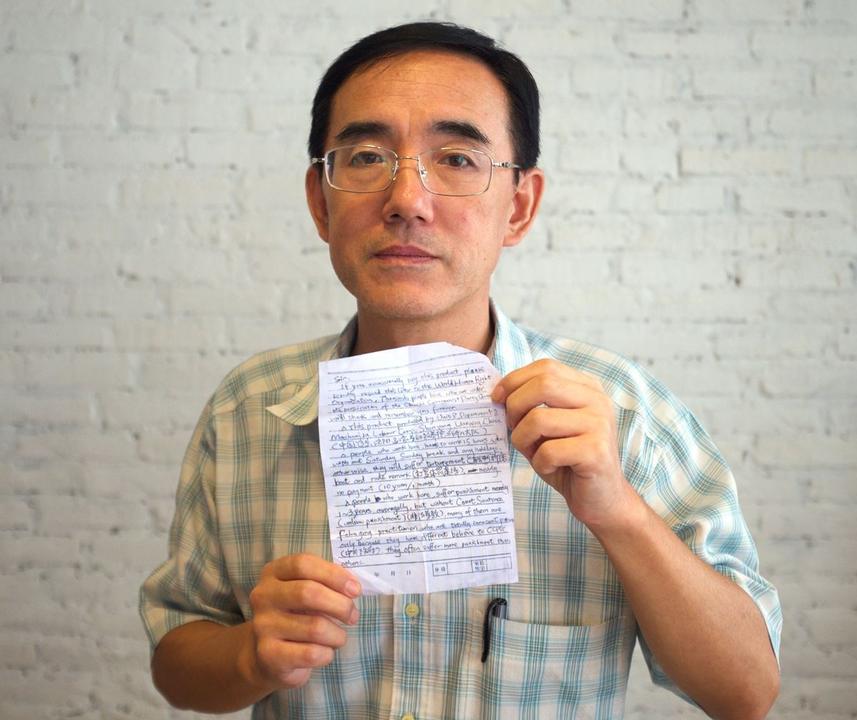 Sir:
If you occasionally buy this product, please
kindly resend this letter to the World Human Right
Organization. Thousands people here who are under
the persicution of the Chinese Communist Party Gover
will thank and remember you forever.
This product produced by Unit 8, Department 2
Masanjia Labour Camp, Shenyang, Liaoning, China
people who work here have to work 15 hours a day
with out Saturday Sunday break and any holidays
otherwise, they will suffer
beat and rude remark nearly
no payment (10 yuan/1 month)
People who work here, suffer punishment nearly
1~3 years averagely, but without Court Sentence
many of them are
Falun gong practitioners, who are totally innocent people
only because they have different believe to CCPG
they often suffer more punishment than
others.